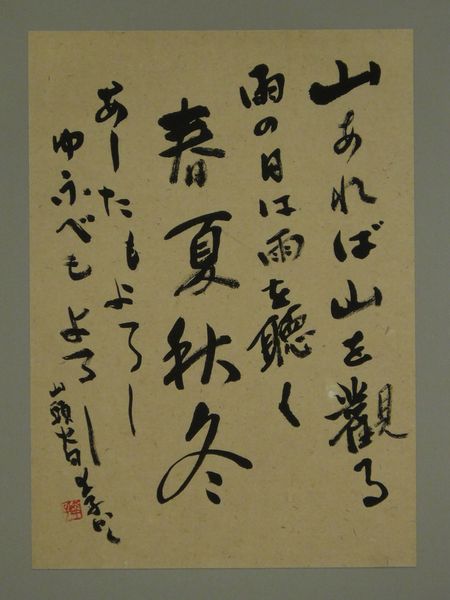 山あれば山を觀る
雨の日は雨を聴く
春夏秋冬
あしたもよろし
ゆふべもよろし
山頭火